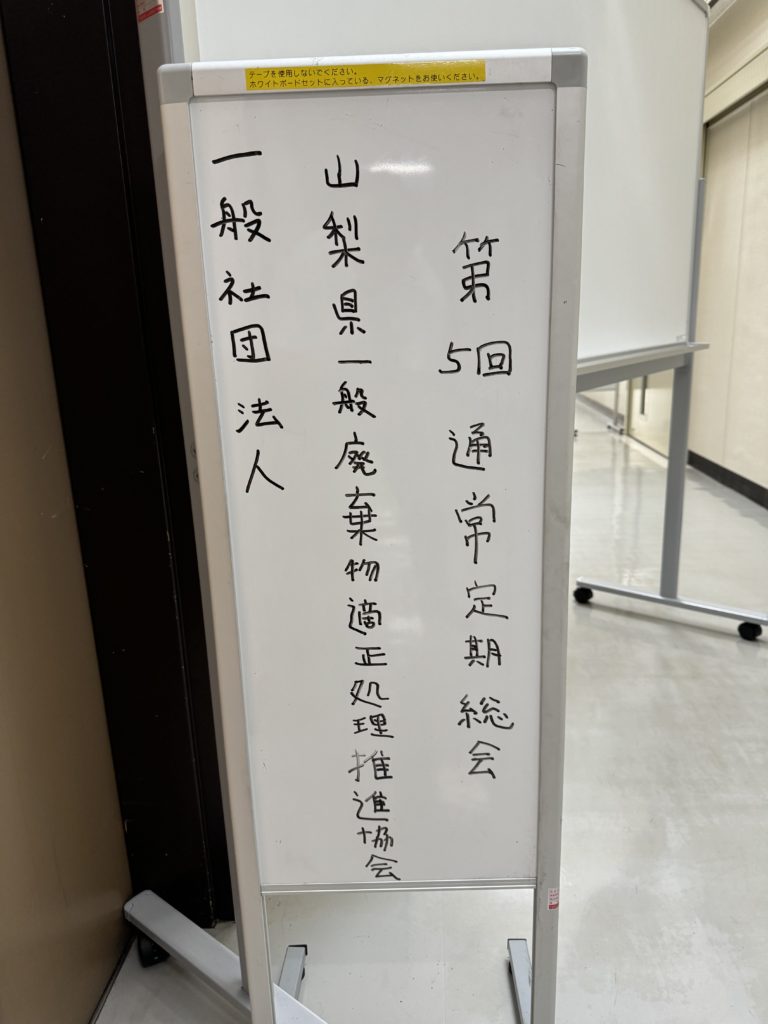 テープを使用しないでください。
ホワイトボードセットに入っている、マグネットをお使いください。
第5回通常定期総会
山梨県一般廃棄物適正処理推進協会
一般社団法人